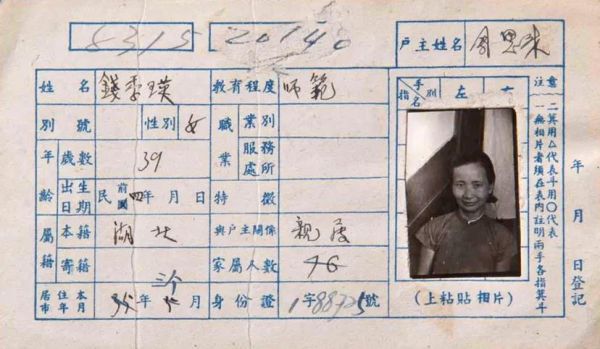 5315 20140
戶主姓名
姓名 錢季瑛 教育程度 師範
別號 性別 女 職業 業別
年齡 歲數 39 服務處所
出生日期 民前國四年 月 日 特徵
屬籍 本籍 湖北 與戶主關係 親屬
寄籍 家屬人數
居住本市年月 年 月 身份證 字 號
指名 手別 左 右
(上粘貼相片)
注意
一無相片者須在表內註明兩手各指箕斗
二箕用△代表斗用〇代表
年 月 日登記